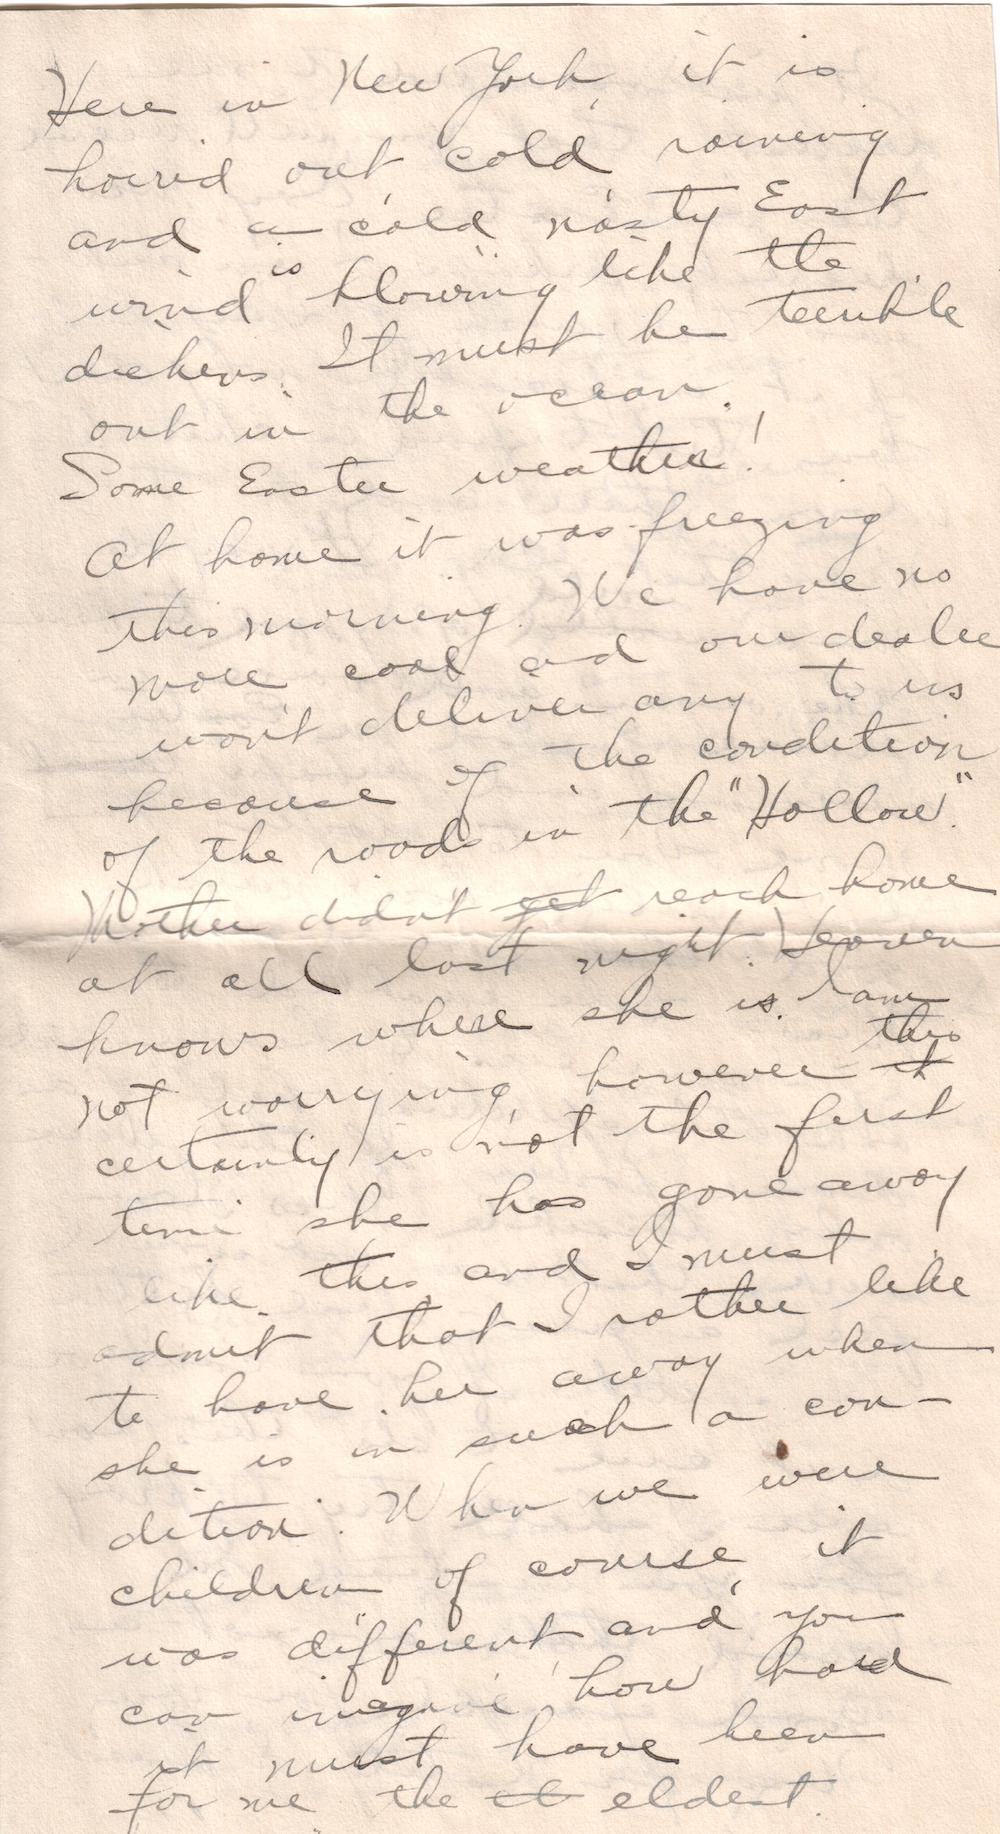 Here in New York, it is
horrid out, cold, raining
and a cold, nasty East
wind is blowing like the
dickens. It must be terrible
out in the ocean.
Some Easter weather!
At home it was freezing
this morning. We have no
more coal and our dealer
won't deliver any to us
because of the condition
of the roads in the "Hollow".
Mother didn't get reach home
at all last night. Heaven
knows where she is. I am
not worrying, however it this
certainly is not the first
time she has gone away
like this, and I must
admit that I rather like
to have her away when
she is in such a con-
dition. When we were
children of course, it
was different and you
can imagine how hard
it must have been
for me the el eldest.